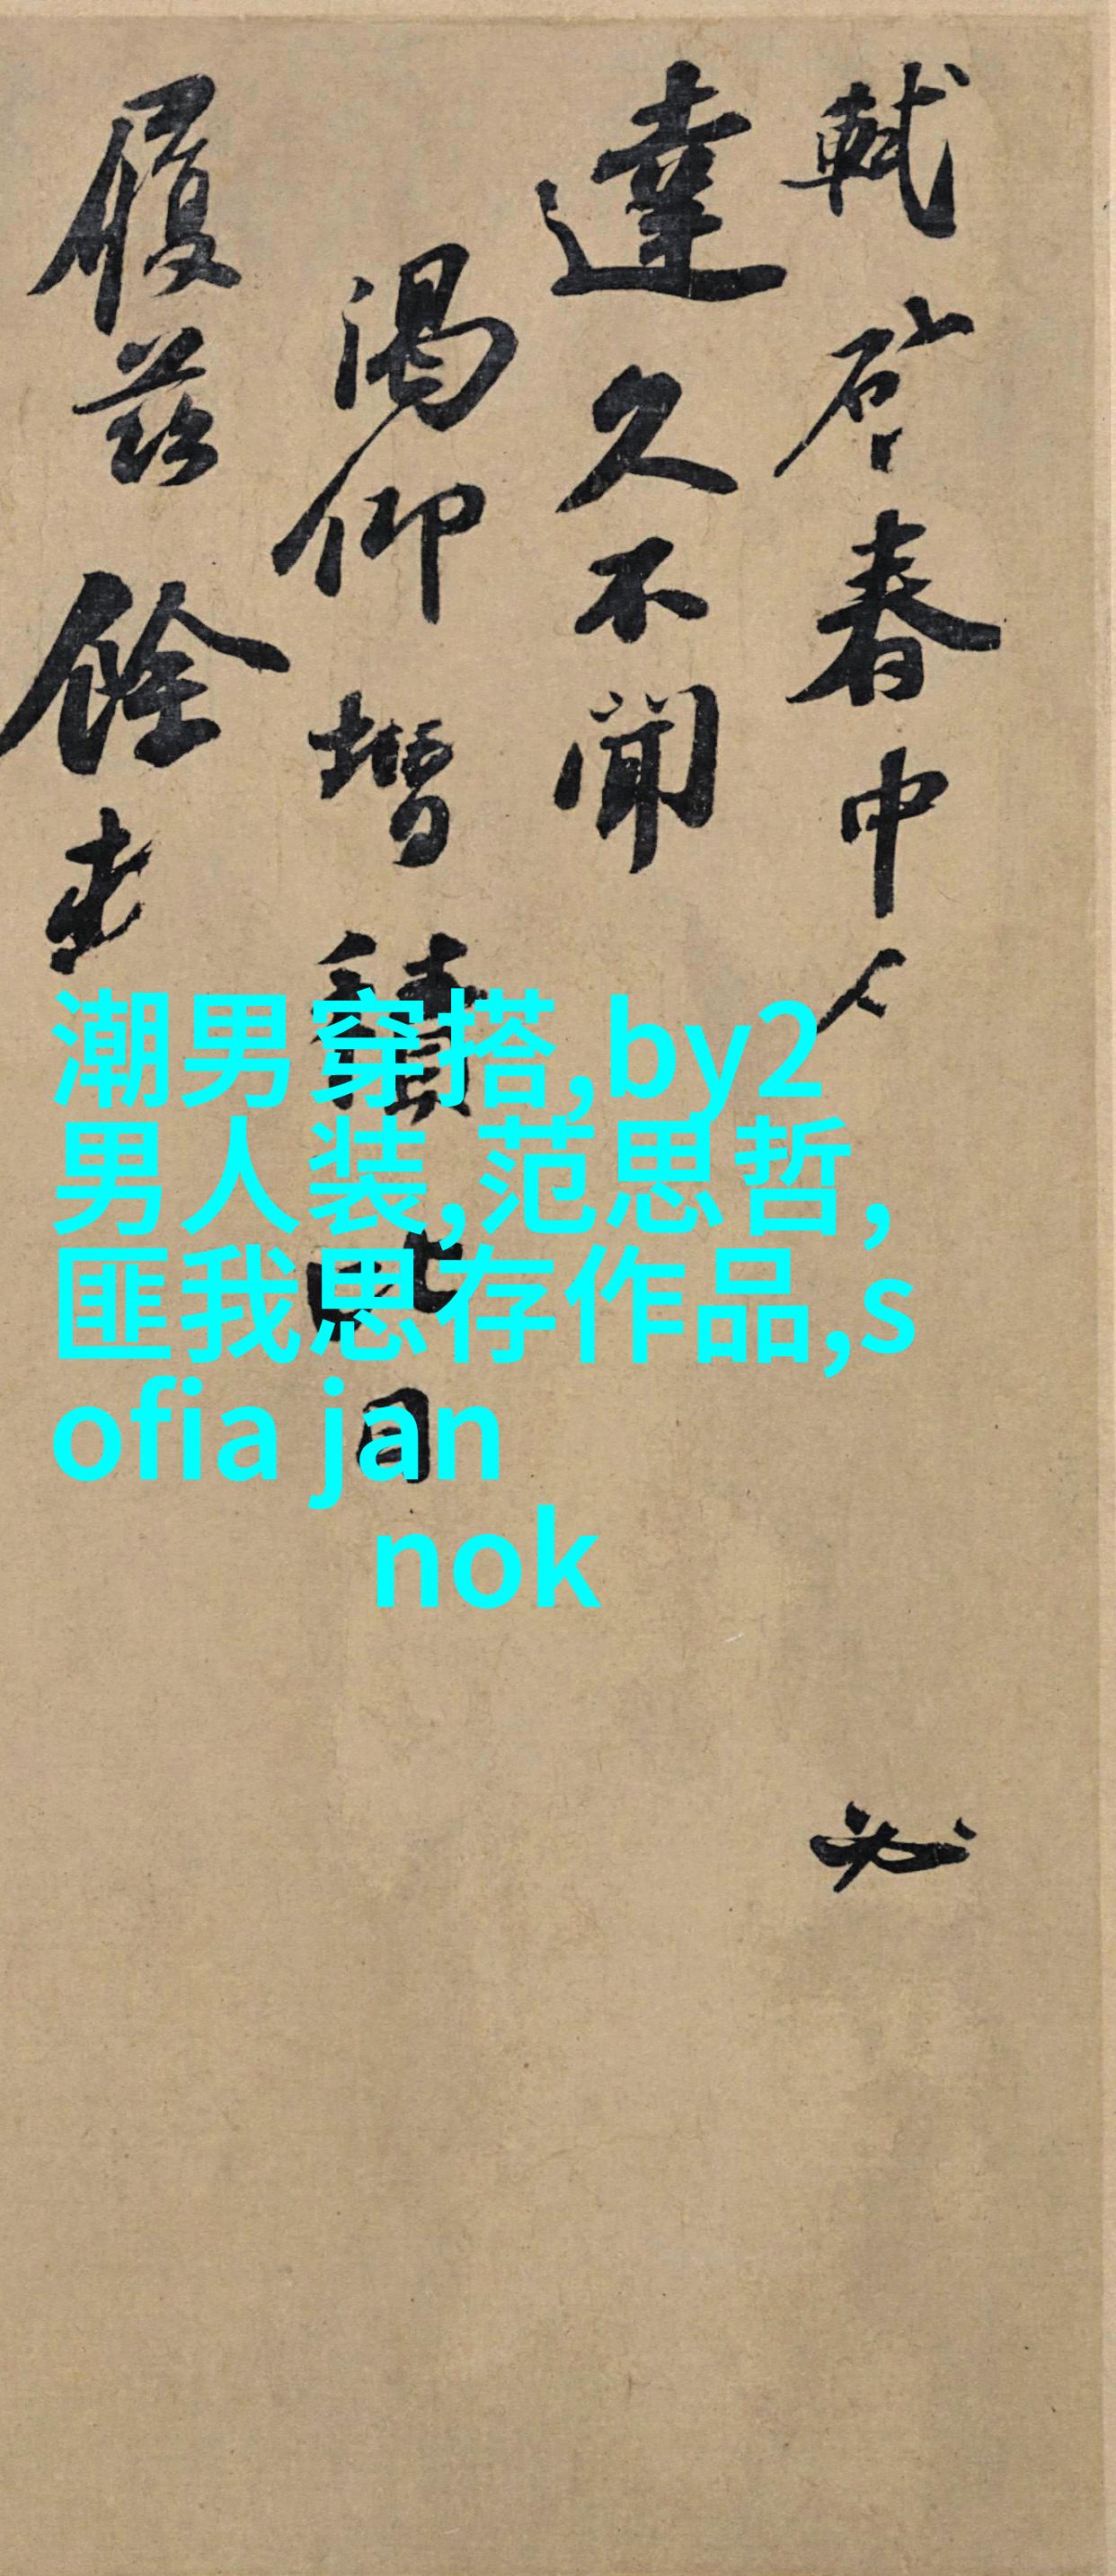 軾啓春中人必
達久不聞
渴仰增積比日
履茲餘
潮男穿搭,by2
男人装,范思哲,
匪我思存作品,s
ofia jan
nok